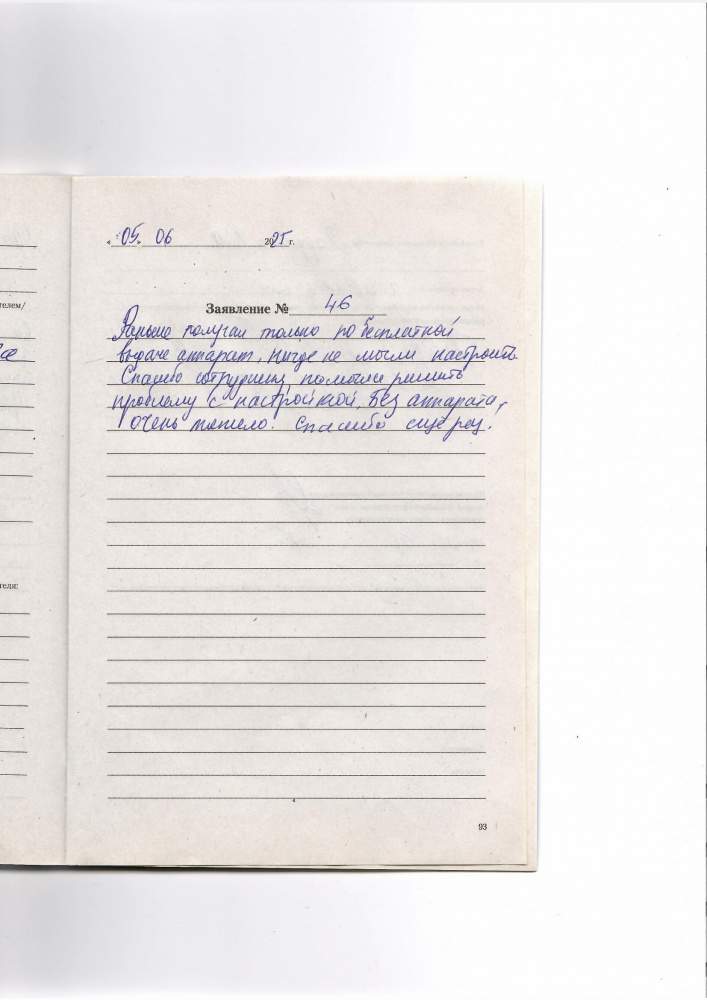 « 05 » 06 2025 г.
Заявление № 46
телем/
Раньше получал только по бесплатной
выдаче аппарат, нигде не могли настроить
Спасибо сотруднику, помогли решить
проблему с настройкой. Без аппарата,
очень тяжело. Спасибо еще раз.
теля:
93